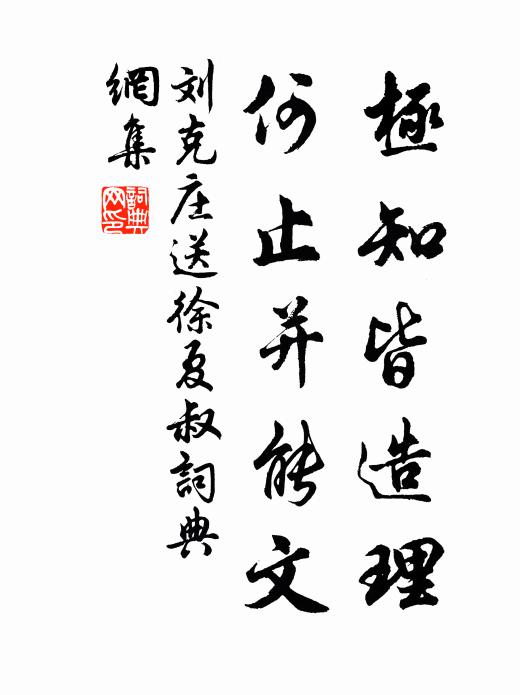 極知皆造理
何止并能文
刘克庄送徐夏叔詞典
網集
詞典
网印